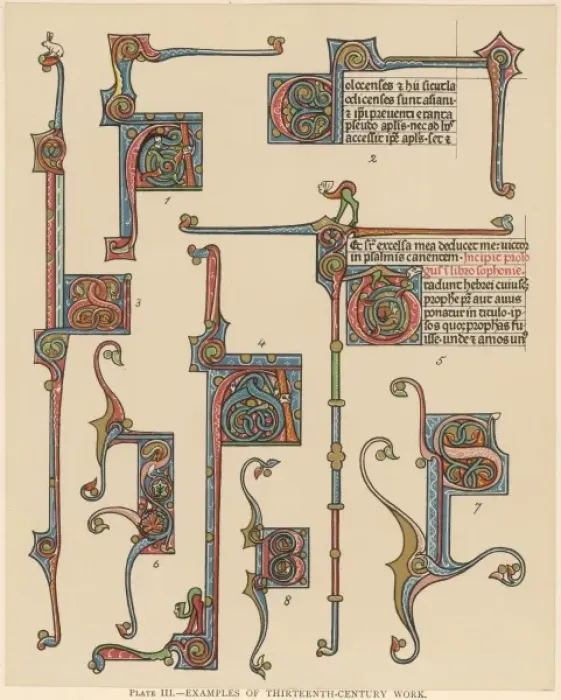 olocenses ⁊ hii sicut la
odicenses sunt asiani·
⁊ ip̄i preuenti erant a
pseudo apl̄is·nec ad
accessit ip̄e apl̄s·set ⁊
2
1
Et sr̄ excelsa mea deducet me: uictor
in psalmis canentem· Incipit prolo
gus ī libro sophonie·
tadunt hebrei cuius
prophe pr̄ aut auus
ponatur in titulo·ip-
sos quoq; prophas fu
isse·unde ⁊ amos unᵒ
3
4
5
6
7
8
PLATE III.—EXAMPLES OF THIRTEENTH-CENTURY WORK.